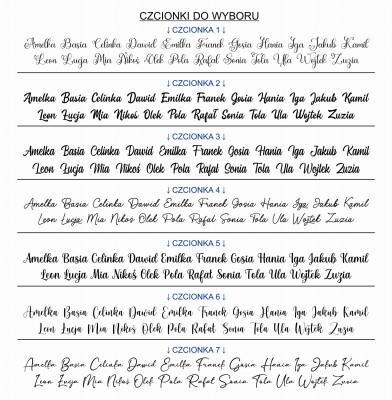 CZCIONKI DO WYBORU
↓CZCIONKA 1↓
Amelka Basia Celinka Dawid Emilka Franek Gosia Hania Iga Jakub Kamil
Leon Łucja Mia Nikoś Olek Pola Rafał Sonia Tola Ula Wojtek Zuzia
↓CZCIONKA 2↓
Amelka Basia Celinka Dawid Emilka Franek Gosia Hania Iga Jakub Kamil
Leon Łucja Mia Nikoś Olek Pola Rafał Sonia Tola Ula Wojtek Zuzia
↓CZCIONKA 3↓
Amelka Basia Celinka Dawid Emilka Franek Gosia Hania Iga Jakub Kamil
Leon Łucja Mia Nikoś Olek Pola Rafał Sonia Tola Ula Wojtek Zuzia
↓CZCIONKA 4↓
Amelka Basia Celinka Dawid Emilka Franek Gosia Hania Iga Jakub Kamil
Leon Łucja Mia Nikoś Olek Pola Rafał Sonia Tola Ula Wojtek Zuzia
↓CZCIONKA 5↓
Amelka Basia Celinka Dawid Emilka Franek Gosia Hania Iga Jakub Kamil
Leon Łucja Mia Nikoś Olek Pola Rafał Sonia Tola Ula Wojtek Zuzia
↓CZCIONKA 6↓
Amelka Basia Celinka Dawid Emilka Franek Gosia Hania Iga Jakub Kamil
Leon Łucja Mia Nikoś Olek Pola Rafał Sonia Tola Ula Wojtek Zuzia
↓CZCIONKA 7↓
Amelka Basia Celinka Dawid Emilia Franek Gosia Hania Iga Jakub Kamil
Leon Łucja Mia Nikoś Olek Pola Rafał Sonia Tola Ula Wojtek Zuzia